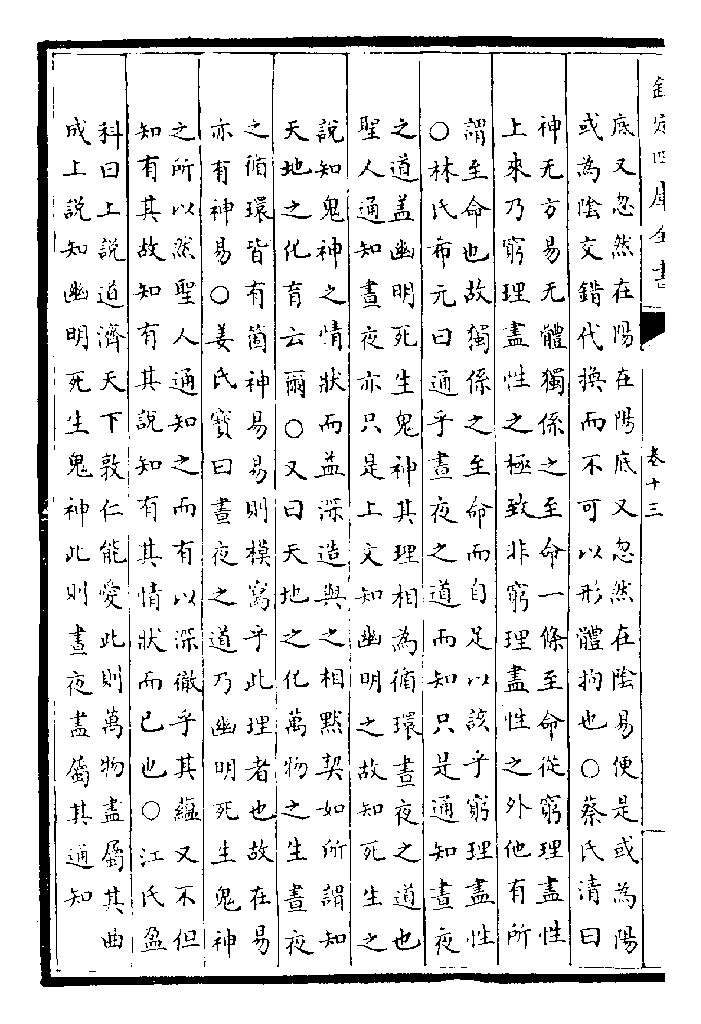 欽定四庫全書
卷十三
底又忽然在陽在陽底又忽然在陰易便是或為陽
或為陰交錯代換而不可以形體拘也○蔡氏清曰
神无方易无體獨係之至命一條至命從窮理盡性
上來乃窮理盡性之極致非窮理盡性之外他有所
謂至命也故獨係之至命而自足以該乎窮理盡性
○林氏希元曰通乎晝夜之道而知只是通知晝夜
之道盖幽明死生鬼神其理相為循環晝夜之道也
聖人通知晝夜亦只是上文知幽明之故知死生之
說知鬼神之情狀而益深造與之相黙契如所謂知
天地之化育云爾○又曰天地之化萬物之生晝夜
之循環皆有箇神易易則模寫乎此理者也故在易
亦有神易○姜氏寶曰晝夜之道乃幽明死生鬼神
之所以然聖人通知之而有以深徹乎其蘊又不但
知有其故知有其說知有其情狀而已也○江氏盈
科曰上說道濟天下敦仁能愛此則萬物盡屬其曲
成上說知幽明死生鬼神此則晝夜盡屬其通知